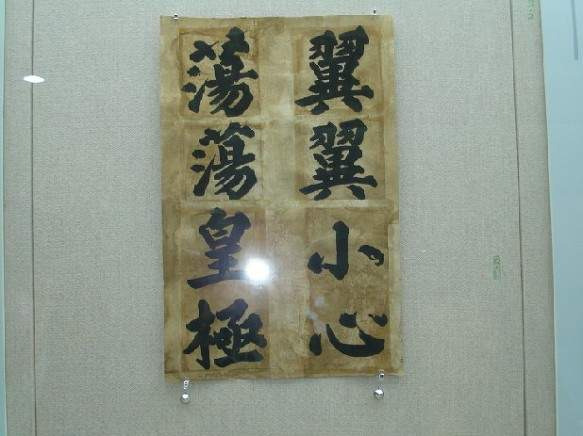 翼翼小心
蕩蕩皇極